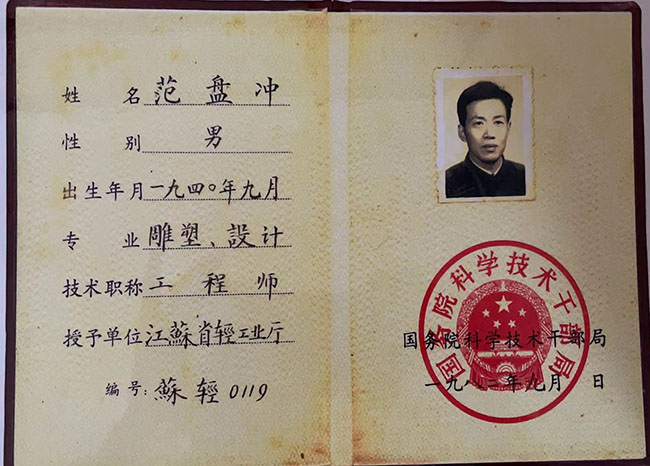 姓 名 范盘冲
性 别 男
出生年月 一九四〇年九月
专 业 雕塑、設计
技术职称 工程师
授予单位 江蘇省輕工业厅
编号: 蘇輕0119
国务院科学技术干部局
国务院科学技术干部局
一九八二年九月 日